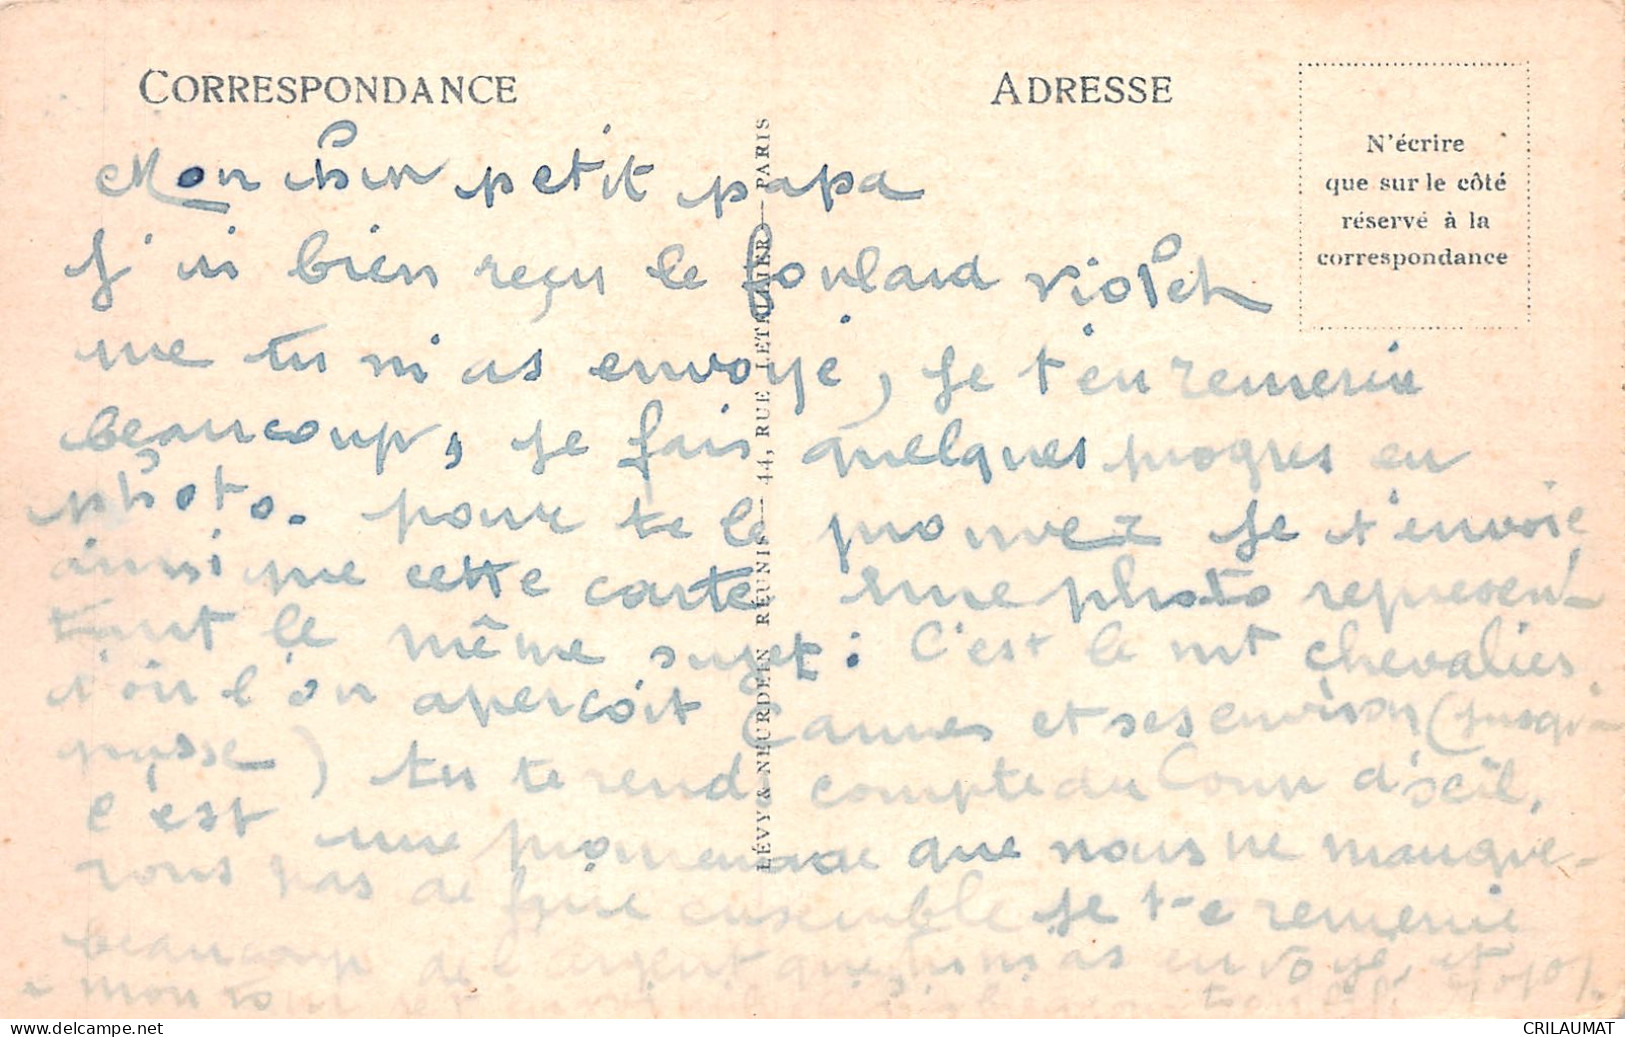 CORRESPONDANCE
ADRESSE
N'écrire
que sur le côté
réservé à la
correspondance
LÉVY & NEURDEIN RÉUNIS 44, RUE LETELLIER PARIS
Mon petit papa
J'ai bien reçu le foulard violet
que tu m'as envoyé, je t'en remercie
beaucoup, je fais quelques progres en
photo. pour te le prouver je t'envoie
ainsi que cette carte une photo represen-
tant le même sujet : C'est le mt chevalier
d'où l'on aperçoit Cannes et ses environs (jusqu'à
) tu te rend compte du Coup d'œil,
c'est une promenade que nous ne manque-
rons pas de faire ensemble je te remercie
beaucoup de l'argent que tu m'as envoyé, et
mon tour
CRILAUMAT